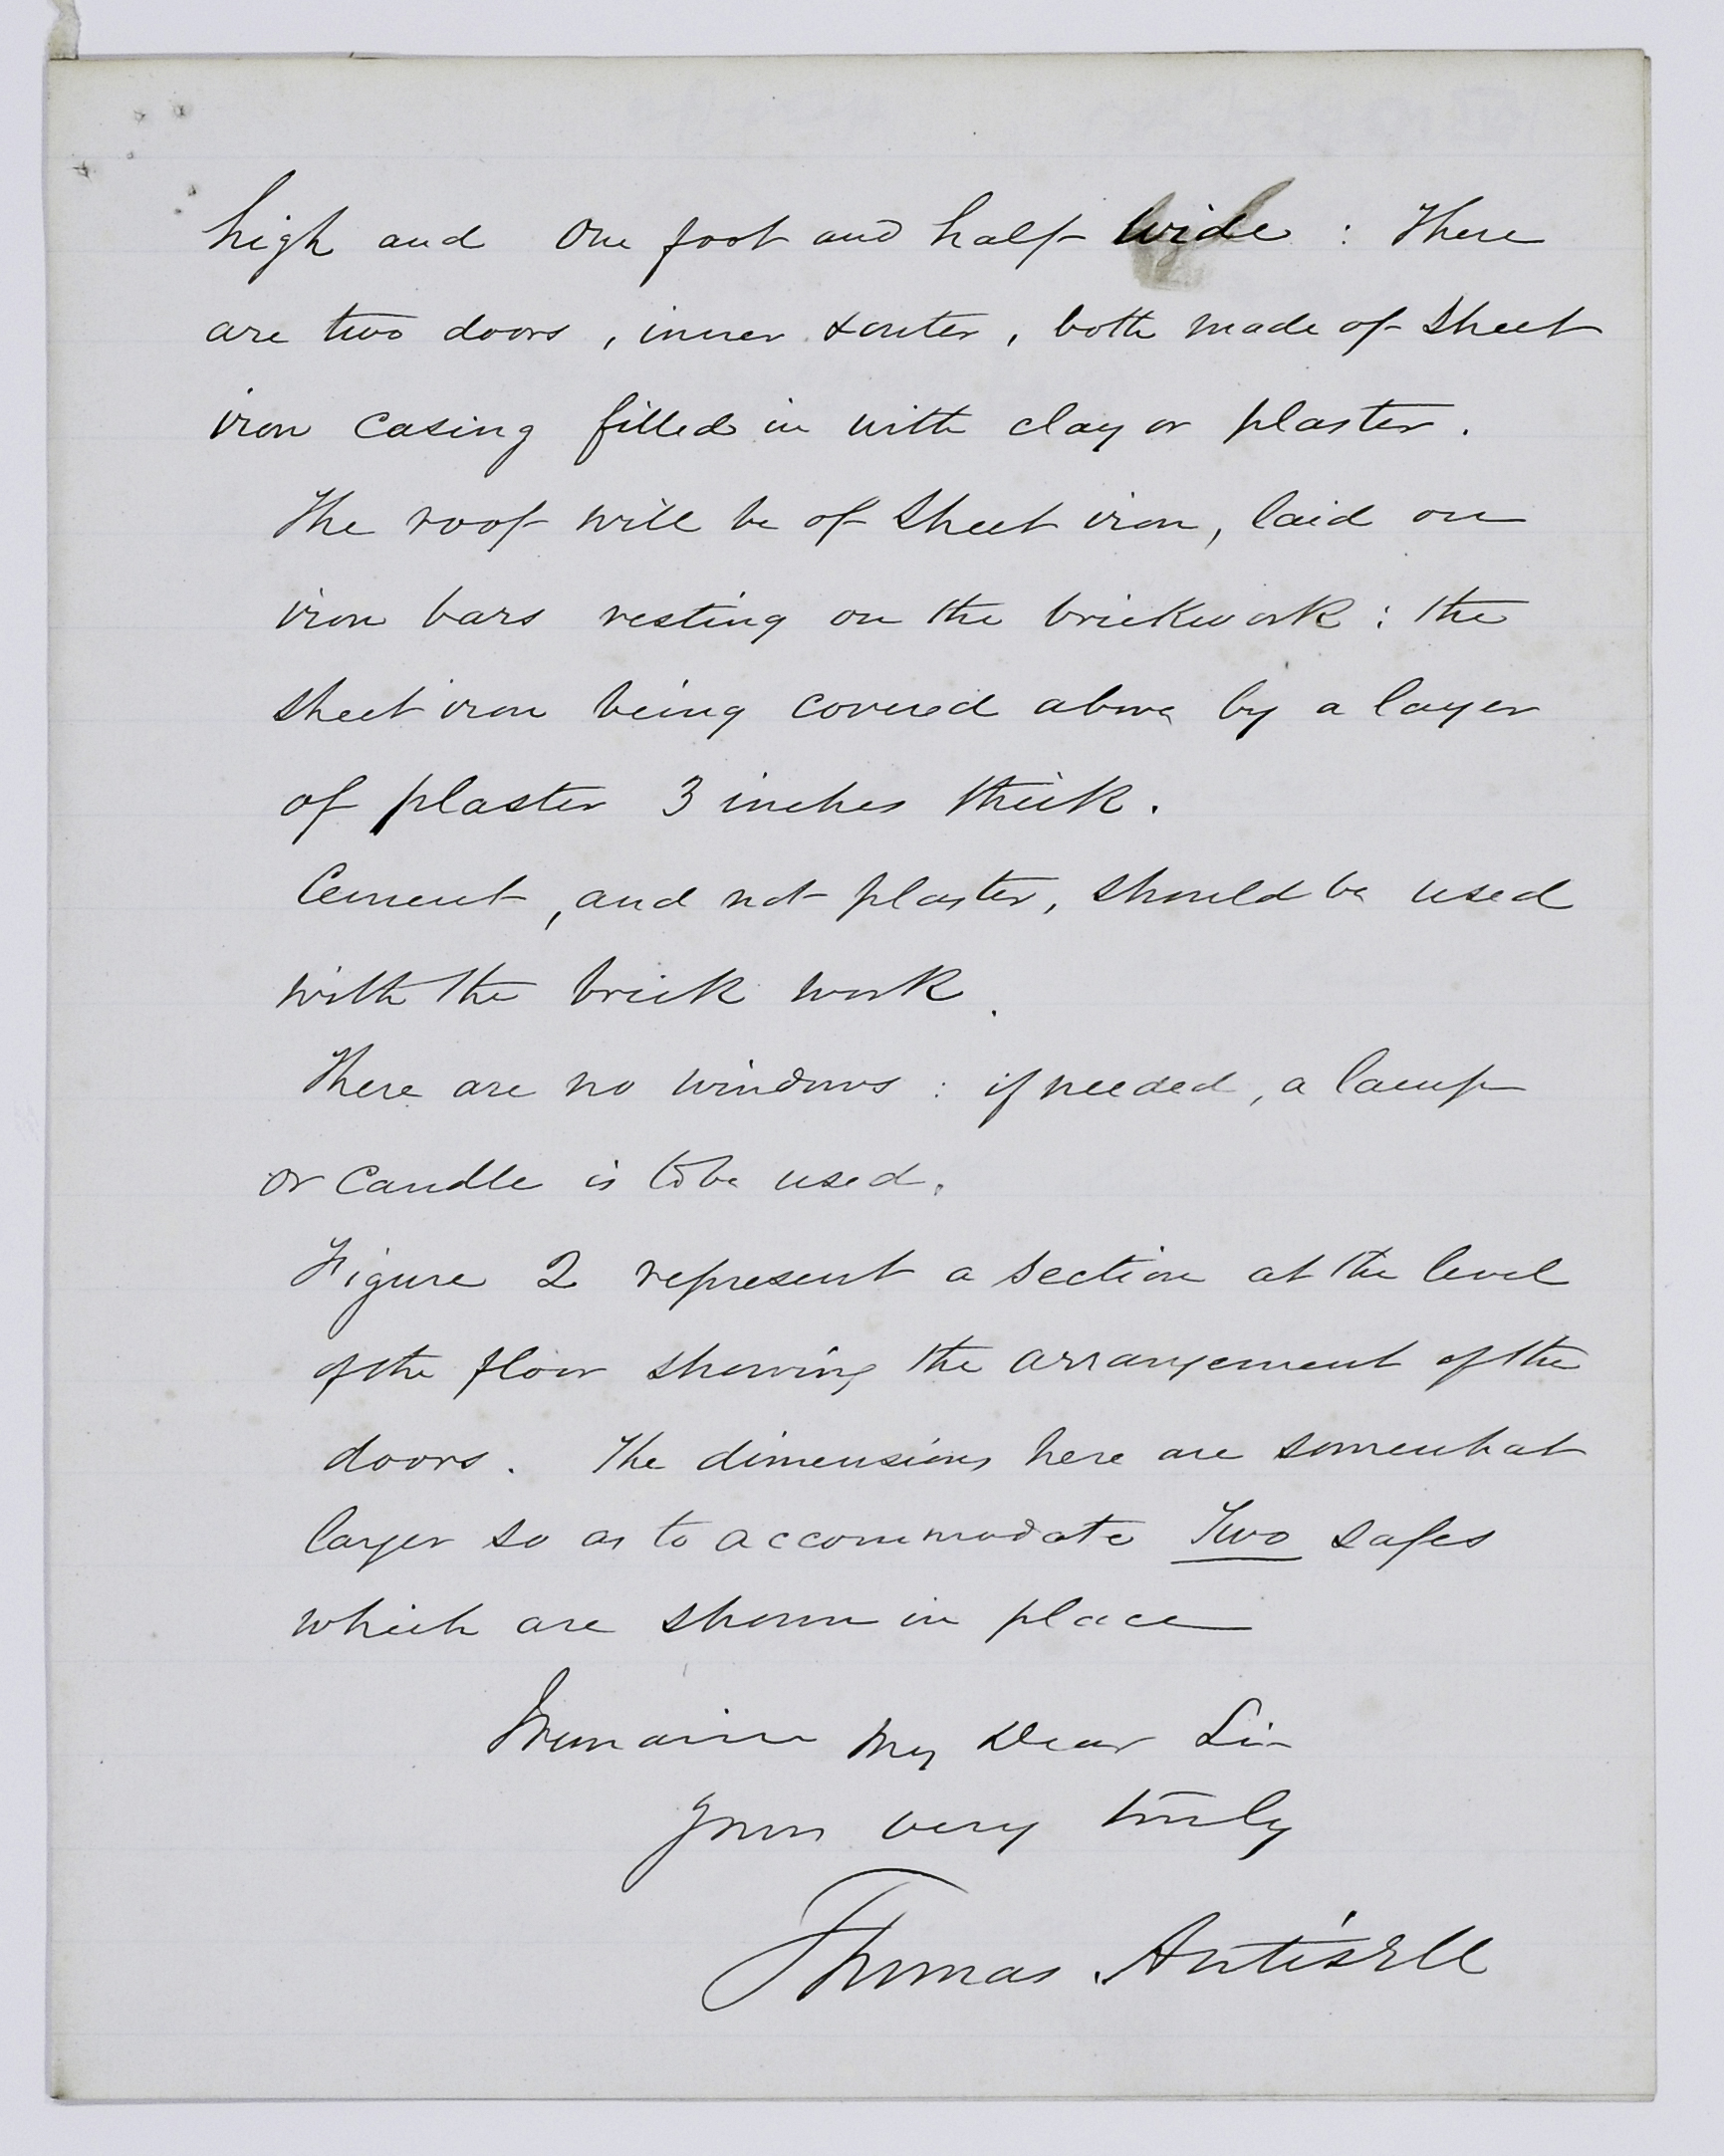 high and One foot and half wide : There
are two doors , inner & outer , both made of Sheet
iron casing filled in with clay or plaster .
The roof will be of Sheet iron, laid on
iron bars resting on the brickwork : the
sheet iron being covered above by a layer
of plaster 3 inches thick .
Cement , and not plaster, should be used
with the brick work .
There are no windows : if needed , a lamp
or candle is to be used .
Figure 2 represent a section at the level
of the floor showing the arrangement of the
doors . The dimensions here are somewhat
larger so as to accommodate Two safes
which are shown in place
I remain My Dear Sir
Yours very truly
Thomas Antisell